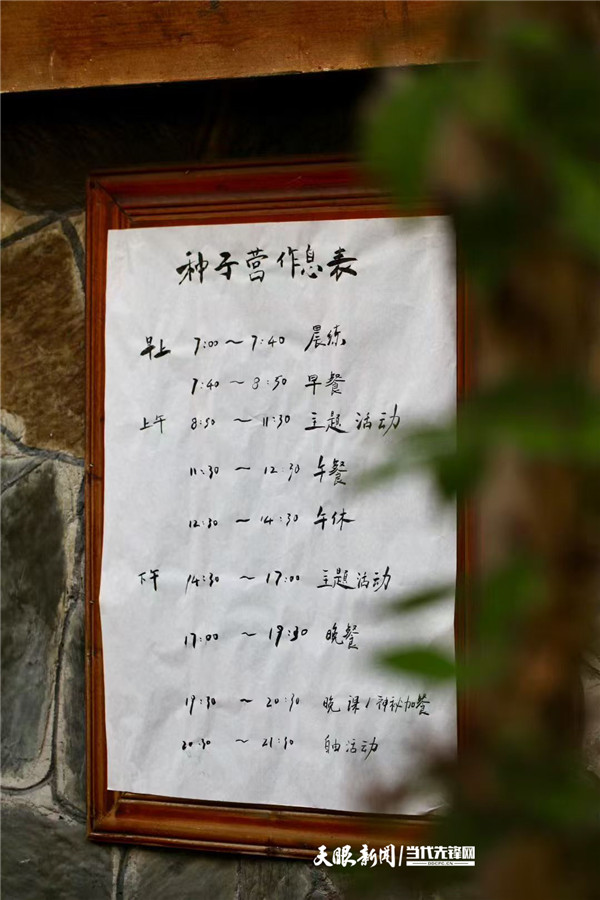 种子营作息表
早上 7:00~7:40 晨练
7:40~8:50 早餐
上午 8:50 ~ 11:30 主题活动
11:30 ~ 12:30 午餐
12:30 ~ 14:30 午休
下午 14:30 ~ 17:00 主题活动
17:00 ~ 19:30 晚餐
19:30 ~ 20:30 晚课/神秘加餐
20:30 ~ 21:30 自由活动
天眼新闻|当代先锋网
DDCPC.CN